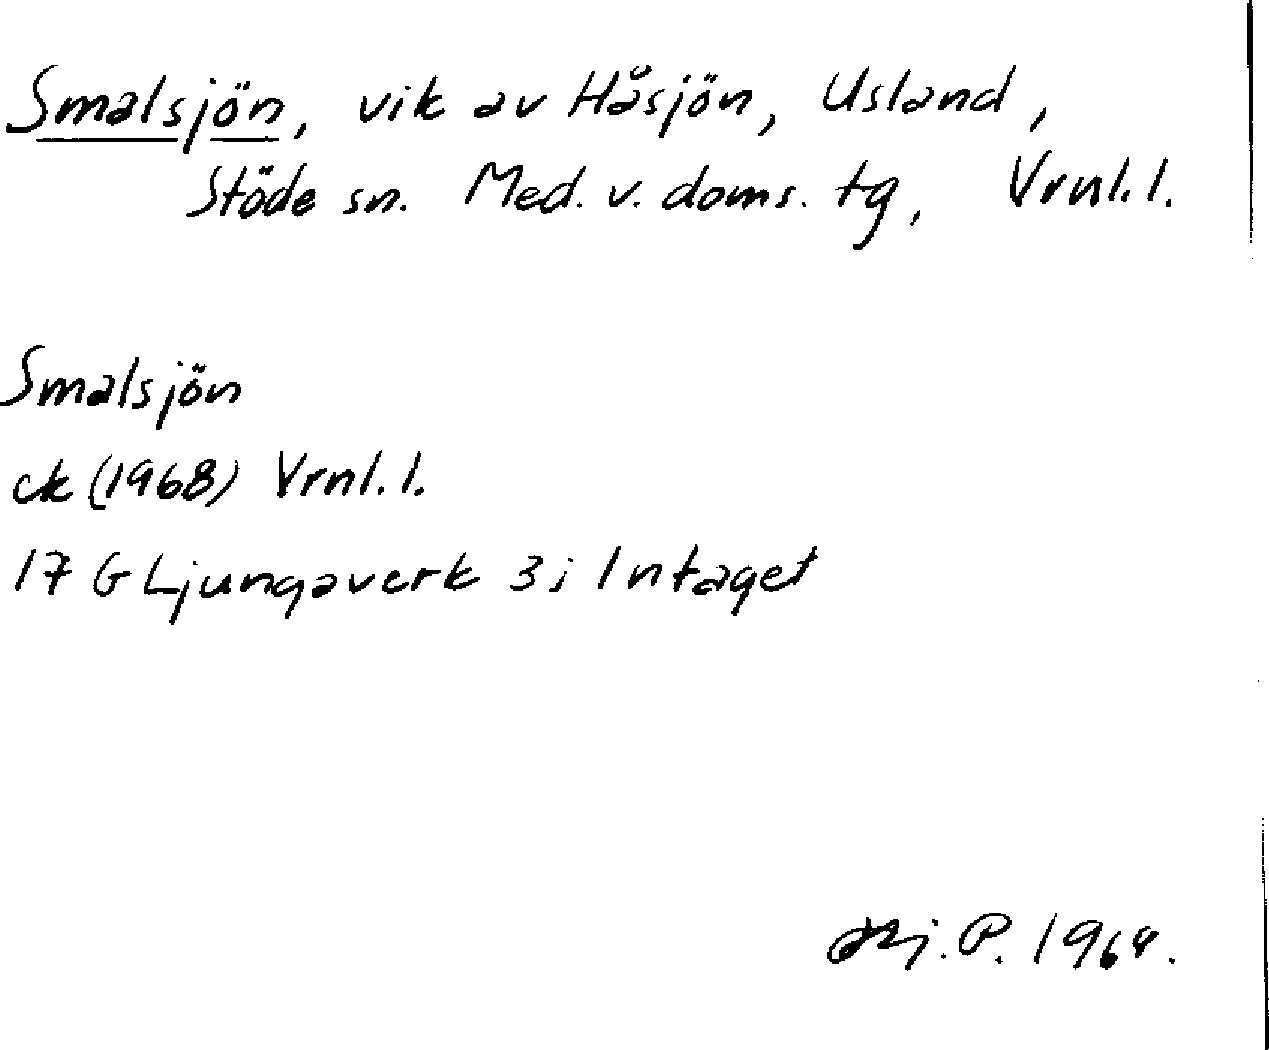 Smalsjön, vik av Håsjön, Usland,
Stöde sn. Med. v. doms. tg, Vrnl. l.
Smalsjön
ek (1968) Vrnl. l.
17 G Ljungaverk 3 j Intaget
Hj. P. 1968.